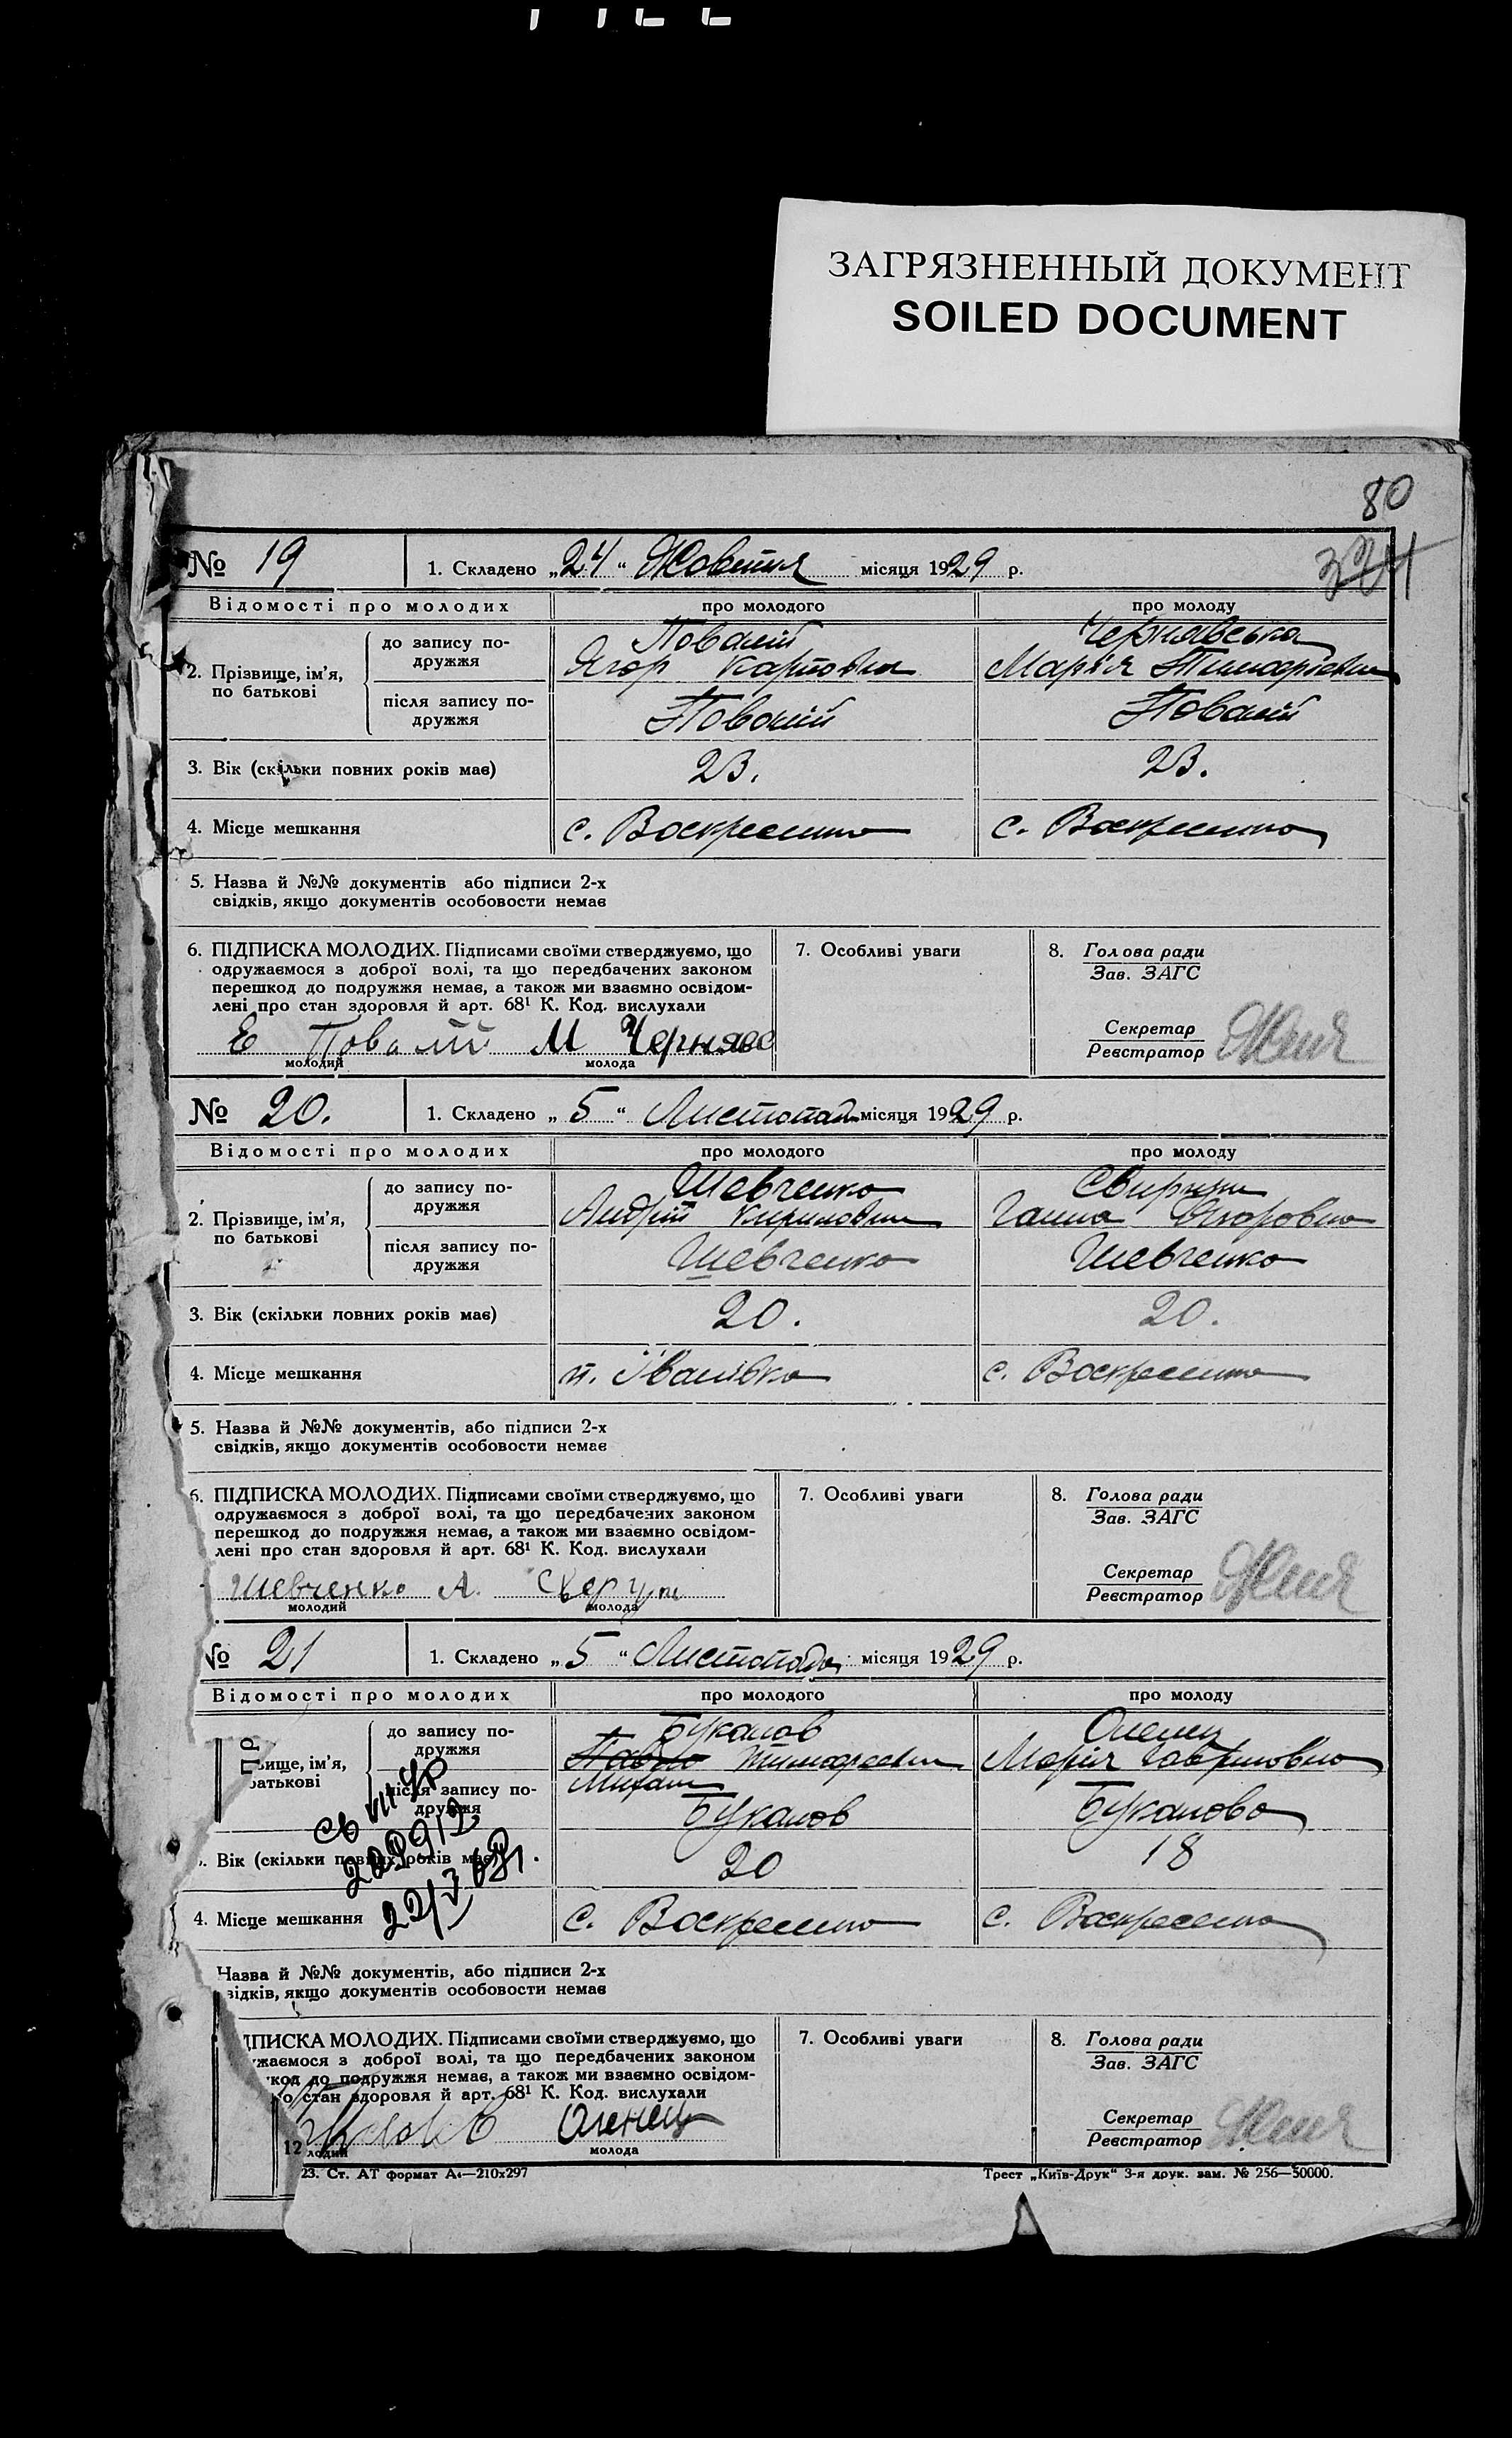 ЗАГРЯЗНЕННЫЙ ДОКУМЕНТ
SOILED DOCUMENT
80
№ 19 1. Складено „24“ Жовтня місяця 1929 р.
Відомості про молодих про молодого про молоду
2. Прізвище, ім'я, по батькові
до запису подружжя
Повалій
Ягор Карпович
Чернявська
Мария
після запису по-
дружжя
Повалій Повалій
3. Вік (скільки повних років має) 23. 23.
4. Місце мешкання с. Воскресенка с. Воскресенка
5. Назва й №№ документів або підписи 2-х
свідків, якщо документів особовости немає
6. ПІДПИСКА МОЛОДИХ. Підписами своїми стверджуємо, що
одружаємося з доброї волі, та що передбачених законом
перешкод до подружжя немає, а також ми взаємно освідом-
лені про стан здоровля й арт. 68¹ К. Код. вислухали
Е Повалій М Чернявс
молодий молода
7. Особливі уваги
8. Голова ради
Зав. ЗАГС
Секретар
Реєстратор
№ 20. 1. Складено „5“ Листопада місяця 1929 р.
Відомості про молодих про молодого про молоду
2. Прізвище, ім'я,
по батькові
до запису по-
дружжя
Шевченко
Андрій Кирилович
Ганна Ягоровна
після запису по-
дружжя
Шевченко Шевченко
3. Вік (скільки повних років має) 20. 20.
4. Місце мешкання п. Іванівка с. Воскресенка
5. Назва й №№ документів, або підписи 2-х
свідків, якщо документів особовости немає
6. ПІДПИСКА МОЛОДИХ. Підписами своїми стверджуємо, що
одружаємося з доброї волі, та що передбачених законом
перешкод до подружжя немає, а також ми взаємно освідом-
лені про стан здоровля й арт. 68¹ К. Код. вислухали
Шевченко А.
молодий молода
7. Особливі уваги
8. Голова ради
Зав. ЗАГС
Секретар
Реєстратор
№ 21 1. Складено „5“ Листопада місяця 1929 р.
Відомості про молодих про молодого про молоду
ПР
вище, ім'я,
батькові
до запису по-
дружжя
Буканов
Павло Тимофеевич
Михаил
Оленец
Мария Гавриловна
після запису по-
дружжя
Буканов Буканова
Вік (скільки повних років має) 20 18
4. Місце мешкання с. Воскресенка с. Воскресенка
Назва й №№ документів, або підписи 2-х
відків, якщо документів особовости немає
ДПИСКА МОЛОДИХ. Підписами своїми стверджуємо, що
ужаємося з доброї волі, та що передбачених законом
код до подружжя немає, а також ми взаємно освідом-
о стан здоровля й арт. 68¹ К. Код. вислухали
Оленец
12 лодий молода
7. Особливі уваги
8. Голова ради
Зав. ЗАГС
Секретар
Реєстратор
23. Ст. АТ формат А₄—210х297
Трест „Київ-Друк“ 3-я друк. зам. № 256—50000.